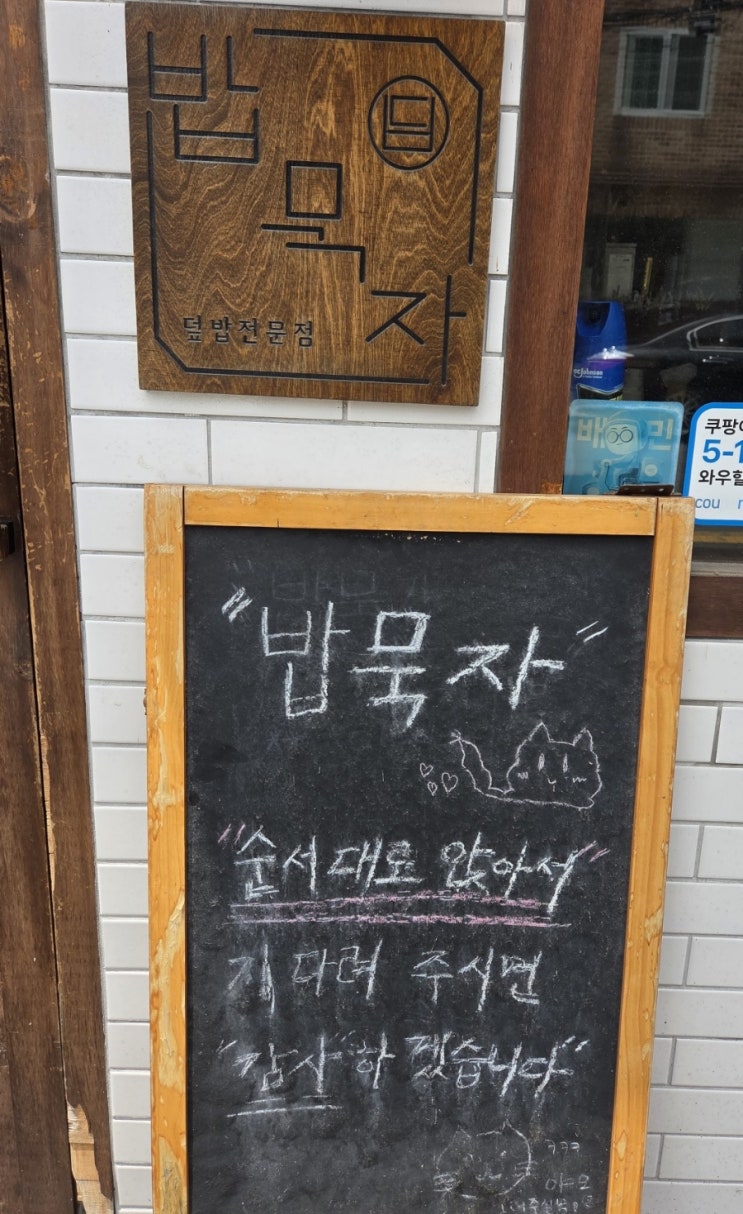 밥묵자
덮밥전문점
배민
쿠팡
5-1
와우할
cou
"밥묵자"
"순서대로 앉아서"
기다려 주시면
"감사"하겠습니다"
ㅋㅋㅋ